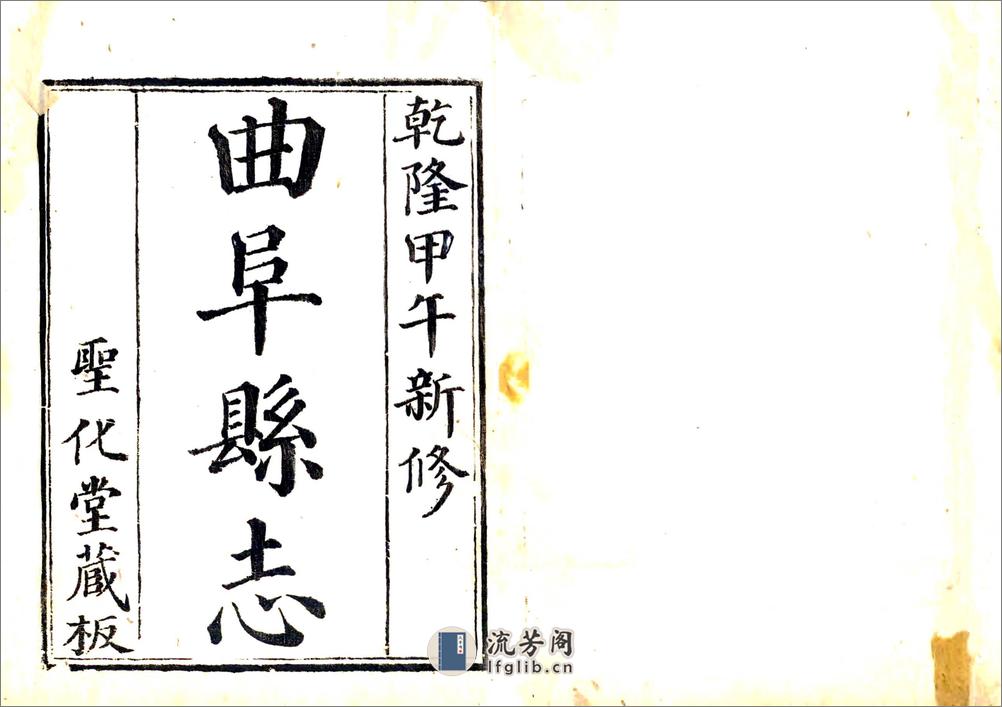 乾隆甲午新修
曲阜縣志
聖化堂藏板
流芳阁
lfglib.cn